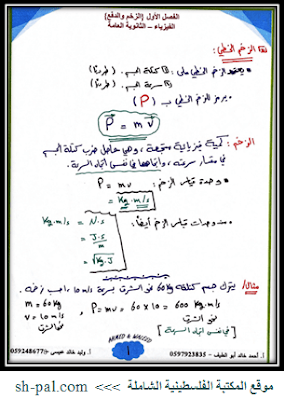 الفصل الأول (الزخم والدفع)
الفيزياء – الثانوية العامة
الزخم الخطي:
يعتمد الزخم الخطي على: (1) كتلة الجسم. (طردياً)
(2) سرعة الجسم. (طردياً)
يرمز للزخم الخطي بـ (P)
P = m v
الزخم: كمية فيزيائية متجهة، وهي حاصل ضرب كتلة الجسم
في مقدار سرعته، واتجاهها في نفس اتجاه السرعة.
وحدة قياس الزخم: P = mv
= Kg.m/s
من وحدات قياس الزخم أيضاً: Kg.m/s = N.s
= J.s/m
= √Kg.J
مثال/ يتحرك جسم كتلته 60kg نحو الشرق بسرعة 10 m/s، احسب زخمه.
m = 60kg
v = 10 m/s
نحو الشرق
P = mv = 60 x 10 = 600 kg.m/s
نحو الشرق
[في نفس اتجاه السرعة]
AHMED & WALEED
1
أ. أحمد خالد أبو الطيف - 0597923835
أ. وليد خالد عيسى - 059248677
موقع المكتبة الفلسطينية الشاملة >>> sh-pal.com